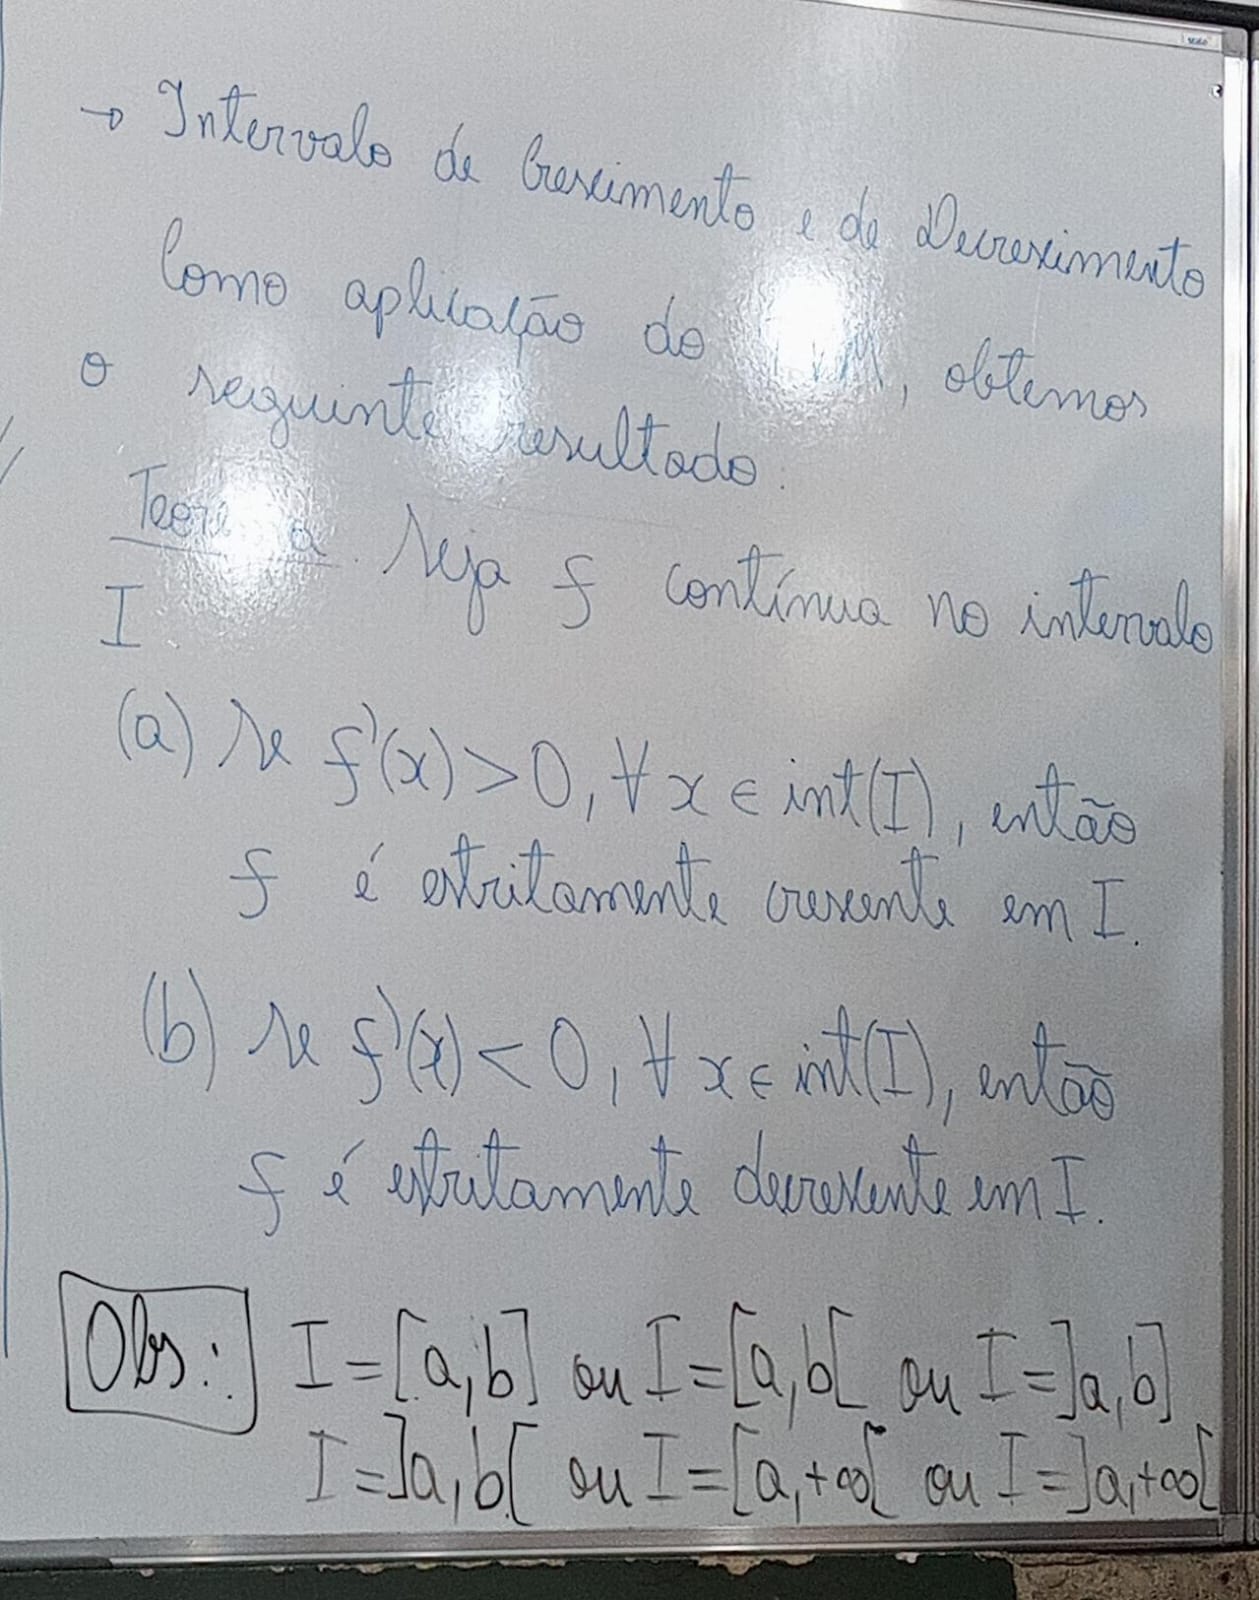 → Intervalo de Crescimento e de Decrescimento
Como aplicação do TVM, obtemos
o seguinte resultado:
Teorema. Seja f contínua no intervalo
I
(a) Se f'(x) > 0, ∀ x ∈ int(I), então
f é estritamente crescente em I.
(b) Se f'(x) < 0, ∀ x ∈ int(I), então
f é estritamente decrescente em I.
Obs: I = [a,b] ou I = [a,b[ ou I = ]a,b]
I = ]a,b[ ou I = [a,+∞[ ou I = ]a,+∞[